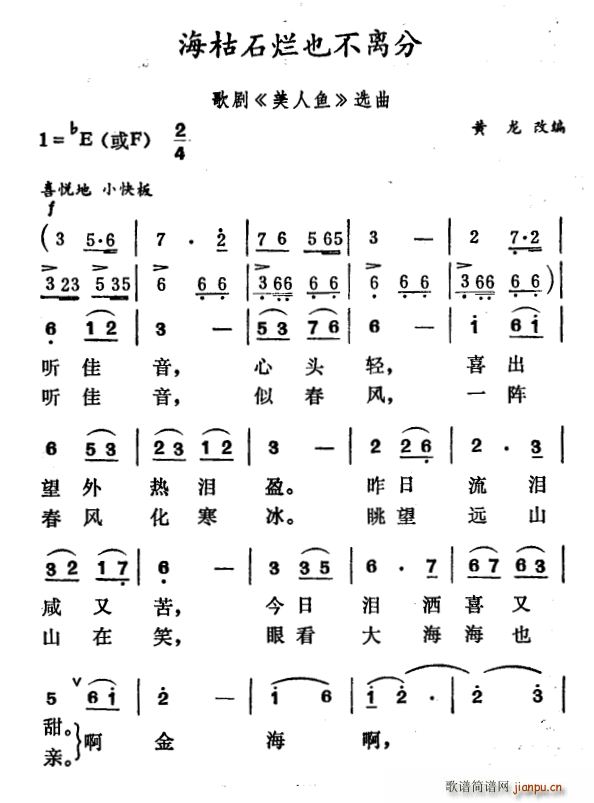 海枯石烂也不离分
歌剧《美人鱼》选曲
1=♭E（或F） 2/4
黄 龙 改编
喜悦地 小快板
f
(3 5·6 | 7 · 2 | 7 6 5 65 | 3 — | 2 7·2 |
3 23 5 35 | 6 6 6 | 3 66 6 6 | 6 6 6 | 3 66 6 6)
6 1 2 | 3 — | 5 3 7 6 | 6 — | i 6 i |
听 佳 音， 心 头 轻， 喜 出
听 佳 音， 似 春 风， 一 阵
6 5 3 | 2 3 1 2 | 3 — | 2 2 6 | 2 · 3 |
望 外 热 泪 盈。 昨 日 流 泪
春 风 化 寒 冰。 眺 望 远 山
3 2 1 7 | 6 — | 3 3 5 | 6 · 7 | 6 7 6 3 |
咸 又 苦， 今 日 泪 洒 喜 又
山 在 笑， 眼 看 大 海 海 也
5 ∨ 6 i | 2 — | i 6 | i 2 · | 2 3 |
甜。 啊 金 海 啊，
亲。
歌谱简谱网
jianpu.cn